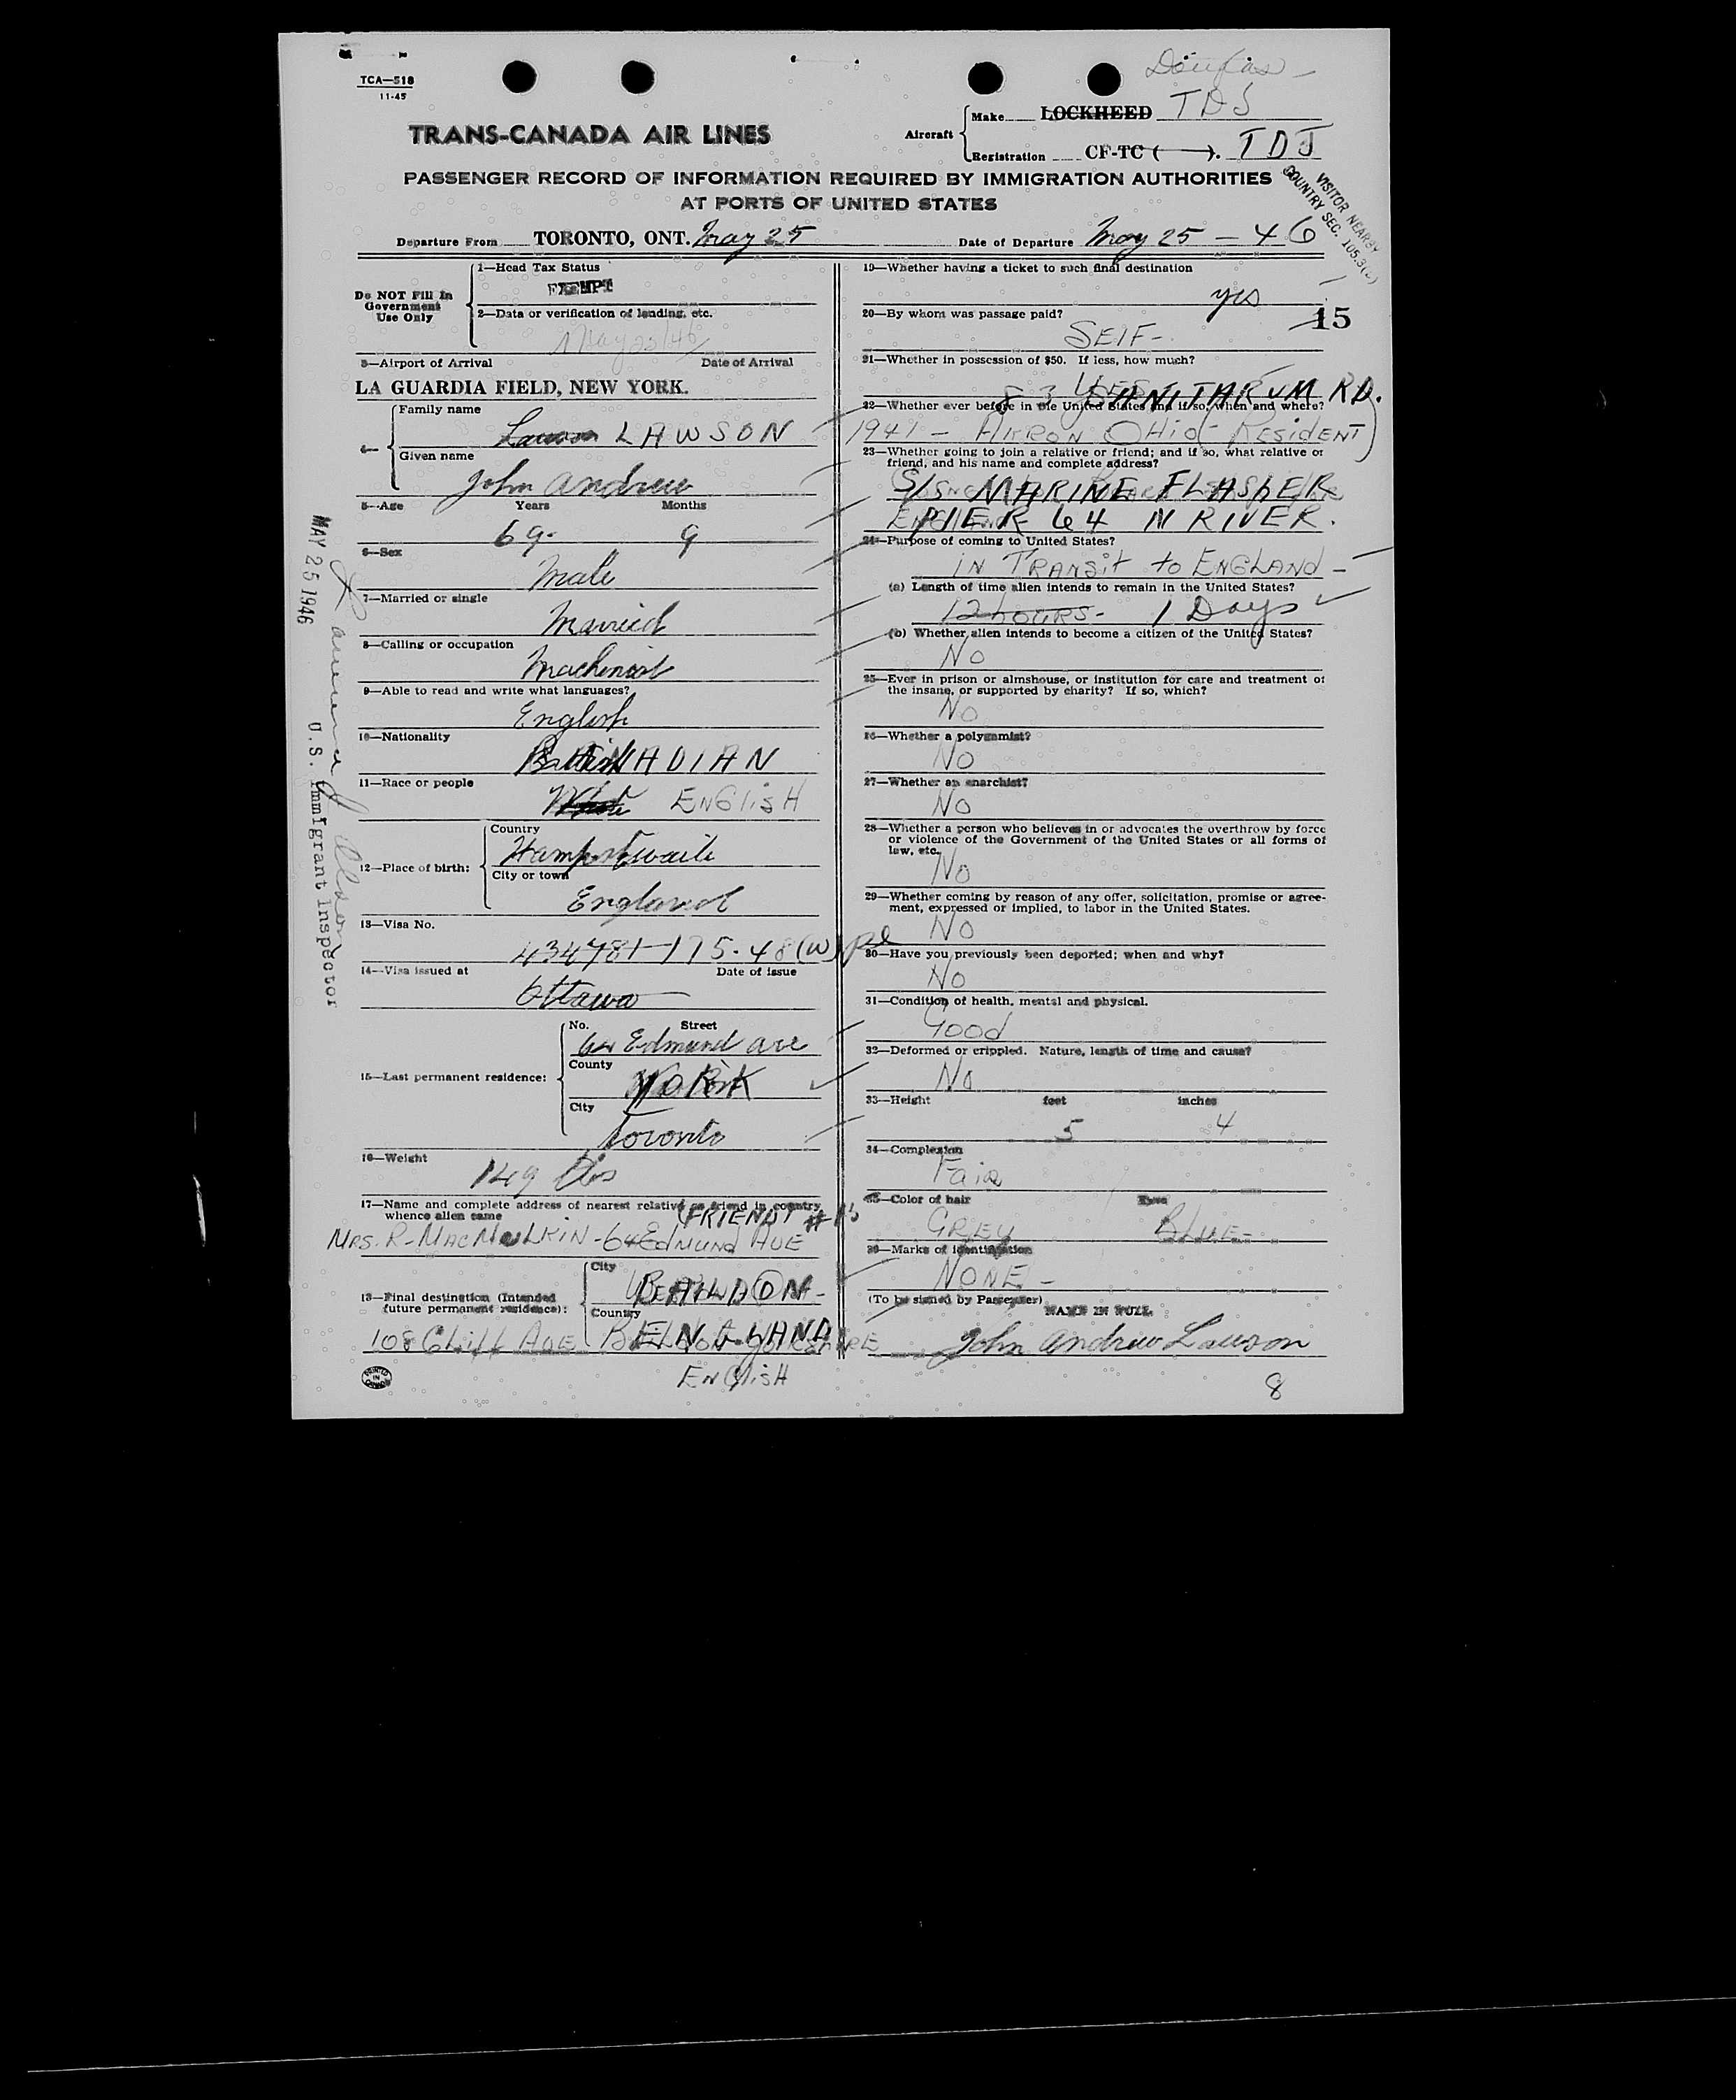 TCA—518
11-45
Douglas —
TRANS-CANADA AIR LINES
Aircraft
Make LOCKHEED TDJ
Registration CF-TC ( ). TDJ
PASSENGER RECORD OF INFORMATION REQUIRED BY IMMIGRATION AUTHORITIES
AT PORTS OF UNITED STATES
VISITOR NEARBY
COUNTRY SEC. 105.3(c)
Departure From TORONTO, ONT. May 25
Date of Departure May 25 — 46
Do NOT Fill In
Government
Use Only
1—Head Tax Status
EXEMPT
2—Data or verification of landing, etc.
May 25/46
3—Airport of Arrival Date of Arrival
LA GUARDIA FIELD, NEW YORK.
4—
Family name
LAWSON
Given name
John Andrew
5—Age Years Months
69 9
6—Sex
Male
7—Married or single
Married
8—Calling or occupation
Machinist
9—Able to read and write what languages?
English
10—Nationality
British CANADIAN
11—Race or people
White ENGLISH
12—Place of birth:
Country
Hampsthwaite
City or town
England
13—Visa No.
434781-175-48(W)
14—Visa issued at Date of issue
Ottawa
15—Last permanent residence:
No. Street
64 Edmund ave
County
YORK
City
Toronto
16—Weight
149 lbs
17—Name and complete address of nearest relative or friend in country
whence alien came
(FRIEND)
MRS. R- - 64 EDMUND AVE
18—Final destination (Intended
future permanent residence):
City
BAILDON
Country
108 CLIFF AVE ENGLAND
ENGLISH
MAY 25 1946
U.S. Immigrant Inspector
19—Whether having a ticket to such final destination
yes
15
20—By whom was passage paid?
SELF-
21—Whether in possession of $50. If less, how much?
YES
83 SANITARUM RD.
22—Whether ever before in the United States and if so, when and where?
1941 — AKRON OHIO (RESIDENT)
23—Whether going to join a relative or friend; and if so, what relative or
friend, and his name and complete address?
S/S MARINE FLASHER
PIER 64 N RIVER.
24—Purpose of coming to United States?
IN TRANSIT to ENGLAND —
(a) Length of time alien intends to remain in the United States?
12 HOURS- 1 Days
(b) Whether alien intends to become a citizen of the United States?
No
25—Ever in prison or almshouse, or institution for care and treatment of
the insane, or supported by charity? If so, which?
No
26—Whether a polygamist?
No
27—Whether an anarchist?
No
28—Whether a person who believes in or advocates the overthrow by force
or violence of the Government of the United States or all forms of
law, etc.
No
29—Whether coming by reason of any offer, solicitation, promise or agree-
ment, expressed or implied, to labor in the United States.
No
30—Have you previously been deported; when and why?
No
31—Condition of health, mental and physical.
Good
32—Deformed or crippled. Nature, length of time and cause?
No
33—Height feet inches
5 4
34—Complexion
Fair
35—Color of hair Eyes
GREY BLUE-
36—Marks of identification
NONE —
(To be signed by Passenger)
NAME IN FULL
John Andrew Lawson
8